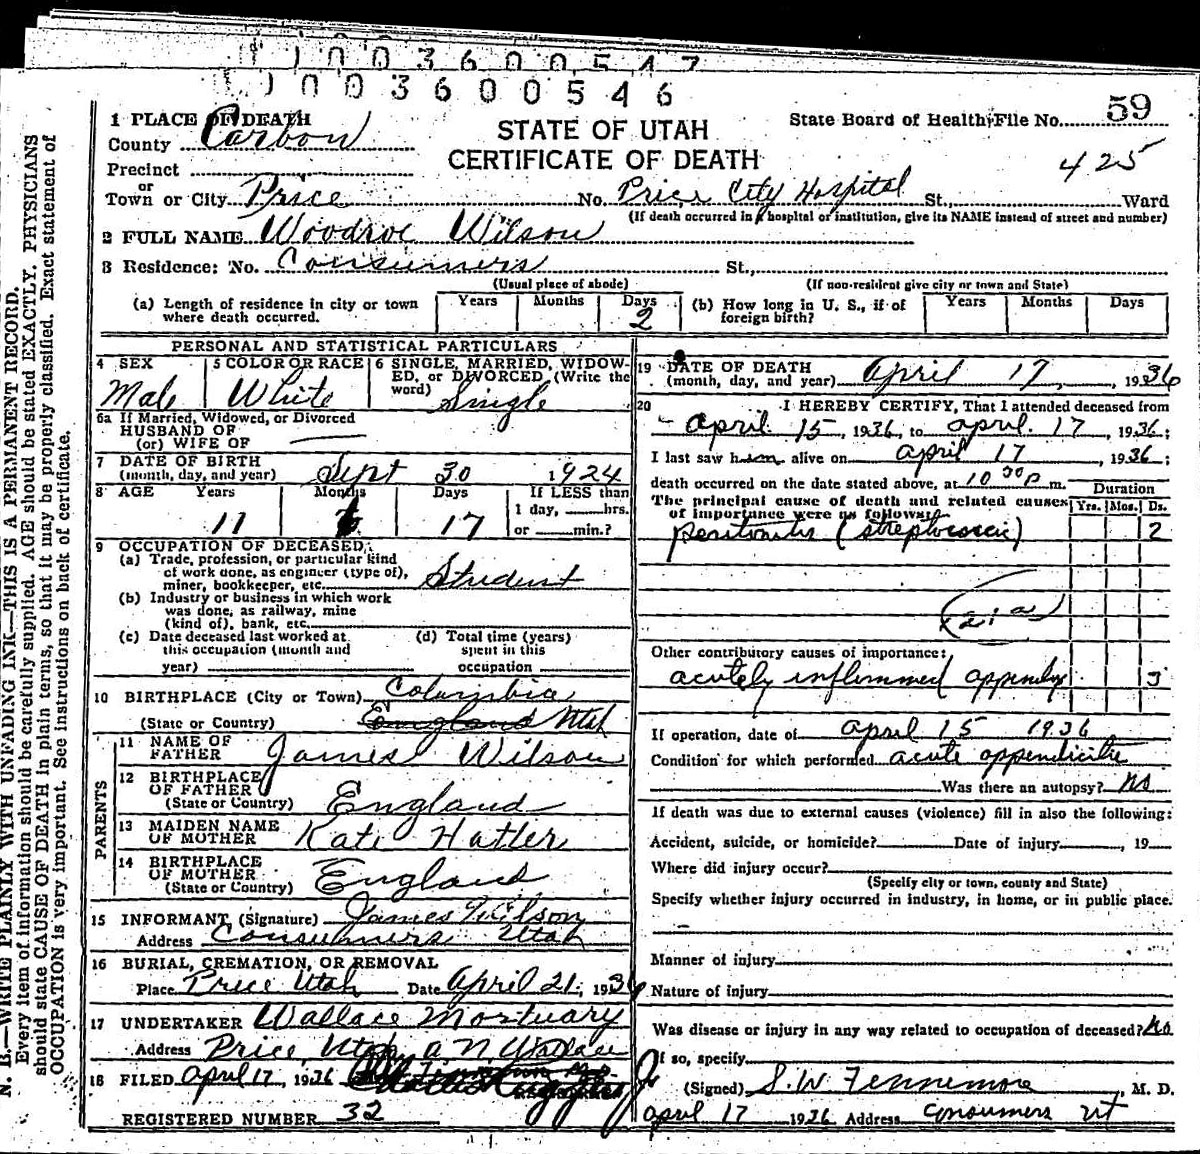 1003600547
1003600546
59
1 PLACE OF DEATH
County Carbon
STATE OF UTAH
CERTIFICATE OF DEATH
State Board of Health File No. 59
425
Precinct
or
Town or City Price No. Price City Hospital St., Ward
(If death occurred in a hospital or institution, give its NAME instead of street and number)
2 FULL NAME Woodroe Wilson
3 Residence: No. Consumers St.,
(Usual place of abode) (If non-resident give city or town and State)
(a) Length of residence in city or town where death occurred. Years Months Days 2
(b) How long in U. S., if of foreign birth? Years Months Days
PERSONAL AND STATISTICAL PARTICULARS
4 SEX Male
5 COLOR OR RACE White
6 SINGLE, MARRIED, WIDOWED, or DIVORCED (Write the word) Single
6a If Married, Widowed, or Divorced
HUSBAND OF
(or) WIFE OF
7 DATE OF BIRTH
(month, day, and year) Sept 30 1924
8 AGE Years Months Days If LESS than
1 day, hrs.
11 6 17 or min.?
9 OCCUPATION OF DECEASED
(a) Trade, profession, or particular kind
of work done, as engineer (type of),
miner, bookkeeper, etc. Student
(b) Industry or business in which work
was done, as railway, mine
(kind of), bank, etc.
(c) Date deceased last worked at
this occupation (month and
year)
(d) Total time (years)
spent in this
occupation
10 BIRTHPLACE (City or Town) Columbia
(State or Country) England Utah
PARENTS
11 NAME OF
FATHER James Wilson
12 BIRTHPLACE
OF FATHER
(State or Country) England
13 MAIDEN NAME
OF MOTHER Kate Hatler
14 BIRTHPLACE
OF MOTHER
(State or Country) England
15 INFORMANT (Signature) James Wilson
Address Consumers Utah
16 BURIAL, CREMATION, OR REMOVAL
Place Price Utah Date April 21, 1936
17 UNDERTAKER Wallace Mortuary
Address Price, Utah A. N. Wallace
18 FILED April 17, 1936
REGISTERED NUMBER 32
19 DATE OF DEATH
(month, day, and year) April 17, 1936
20 I HEREBY CERTIFY, That I attended deceased from
April 15, 1936, to April 17, 1936;
I last saw him alive on April 17, 1936;
death occurred on the date stated above, at 10 30 P m.
The principal cause of death and related causes
of importance were as follows: Duration
Yrs. Mos. Ds.
peritonitis (streptococcic) 2
Other contributory causes of importance:
acutely inflammed appendix 3
If operation, date of April 15 1936
Condition for which performed acute appendicitis
Was there an autopsy? No
If death was due to external causes (violence) fill in also the following:
Accident, suicide, or homicide? Date of injury , 19
Where did injury occur?
(Specify city or town, county and State)
Specify whether injury occurred in industry, in home, or in public place.
Manner of injury
Nature of injury
Was disease or injury in any way related to occupation of deceased? No
If so, specify
(Signed) S. W. Fennemore, M. D.
April 17 1936 Address Consumers Ut
N. B.—WRITE PLAINLY WITH UNFADING INK—THIS IS A PERMANENT RECORD.
Every item of information should be carefully supplied. AGE should be stated EXACTLY. PHYSICIANS
should state CAUSE OF DEATH in plain terms, so that it may be properly classified. Exact statement of
OCCUPATION is very important. See instructions on back of certificate.